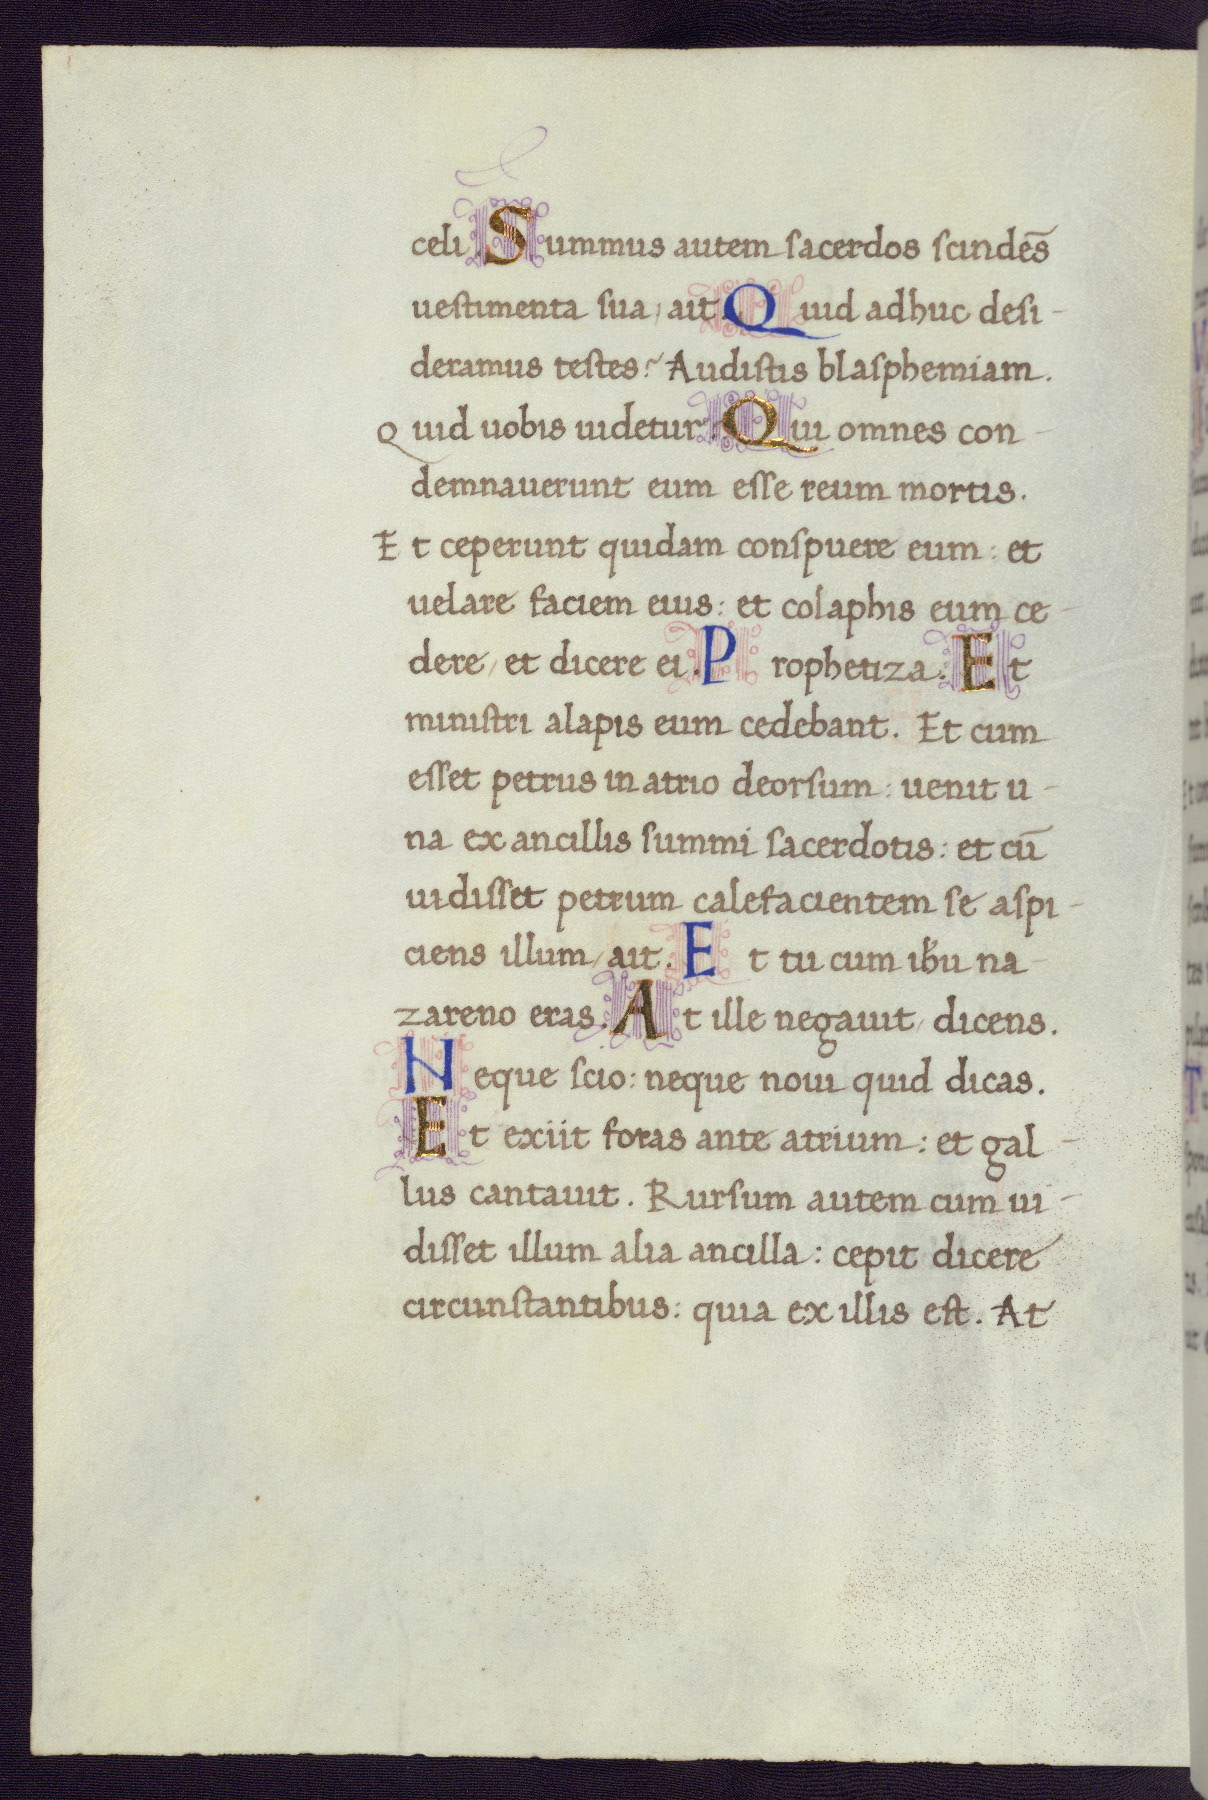 celi. Summus autem sacerdos scindēs
uestimenta sua, ait. Quid adhuc desi-
deramus testes? Audistis blasphemiam.
Quid uobis uidetur? Qui omnes con-
demnauerunt eum esse reum mortis.
Et ceperunt quidam conspuere eum: et
uelare faciem eius: et colaphis eum ce-
dere, et dicere ei. Prophetiza. Et
ministri alapis eum cedebant. Et cum
esset petrus in atrio deorsum: uenit u-
na ex ancillis summi sacerdotis: et cū
uidisset petrum calefacientem se aspi-
ciens illum, ait. Et tu cum ihu na-
zareno eras. At ille negauit, dicens.
Neque scio: neque noui quid dicas.
Et exiit foras ante atrium: et gal-
lus cantauit. Rursum autem cum ui-
disset illum alia ancilla: cepit dicere
circunstantibus: quia ex illis est. At